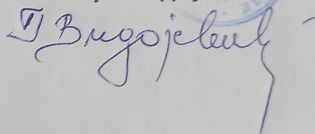 П Видојевић